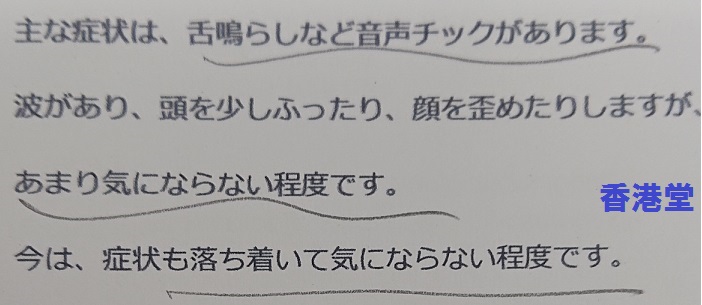 主な症状は、舌鳴らしなど音声チックがあります。
波があり、頭を少しふったり、顔を歪めたりしますが、
あまり気にならない程度です。
香港堂
今は、症状も落ち着いて気にならない程度です。